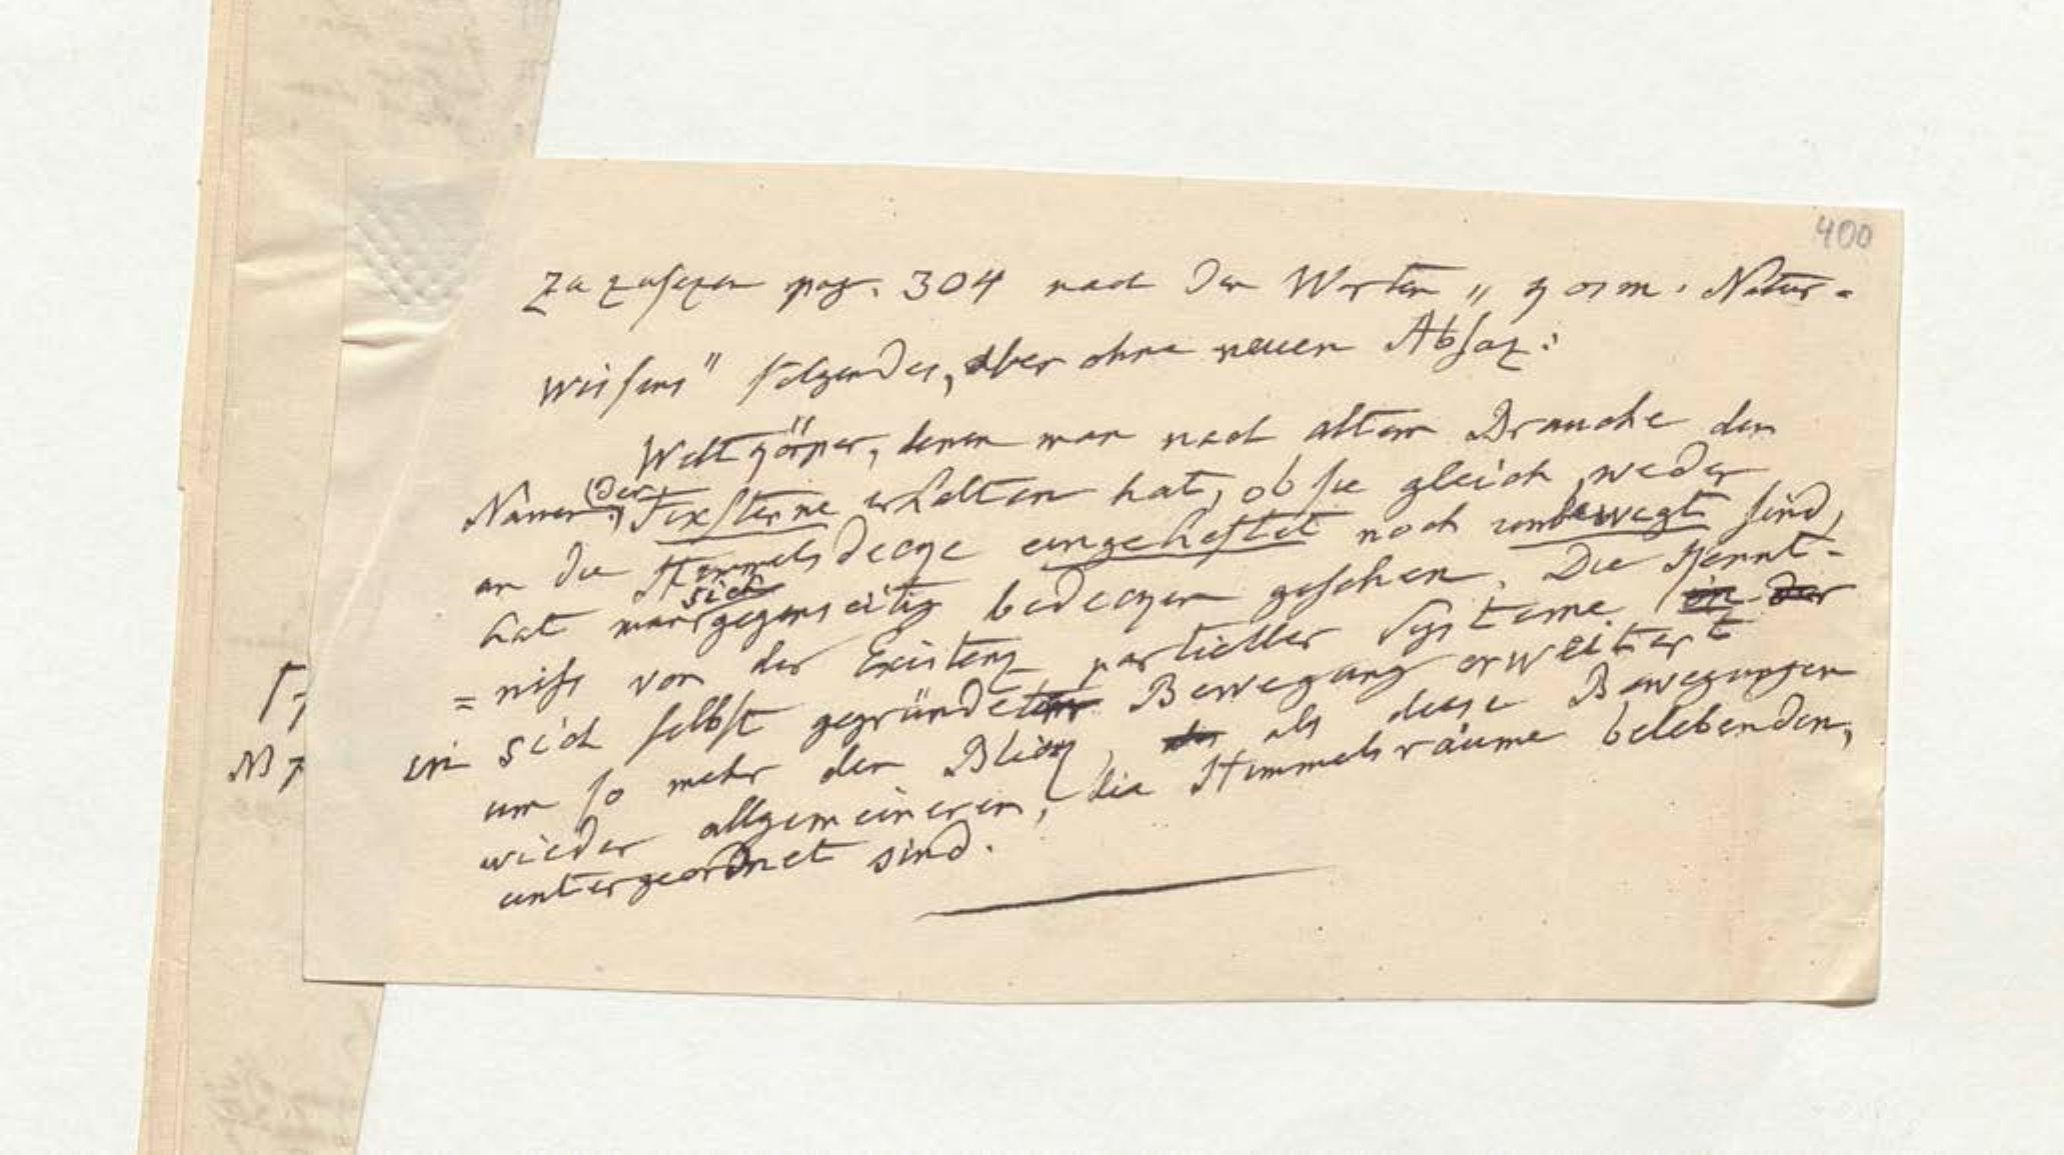 400
Zu zusezen pag. 304 nach den Worten „kosm. Natur-
wissens" folgendes, aber ohne neuen Absaz:
Weltkörper, denen man nach altem Brauche den
Namen der Fixsterne erhalten hat, ob sie gleich weder
an die Himmelsdecke angeheftet noch unbewegt sind,
hat man sich gegenseitig bedecken gesehen. Die Kennt-
=niss von der Existenz partieller Systeme in der
in sich selbst gegründeter Bewegung erweitert
um so mehr den Blick, als diese Bewegungen
wieder allgemeineren, die Himmelsräume belebenden,
untergeordnet sind.